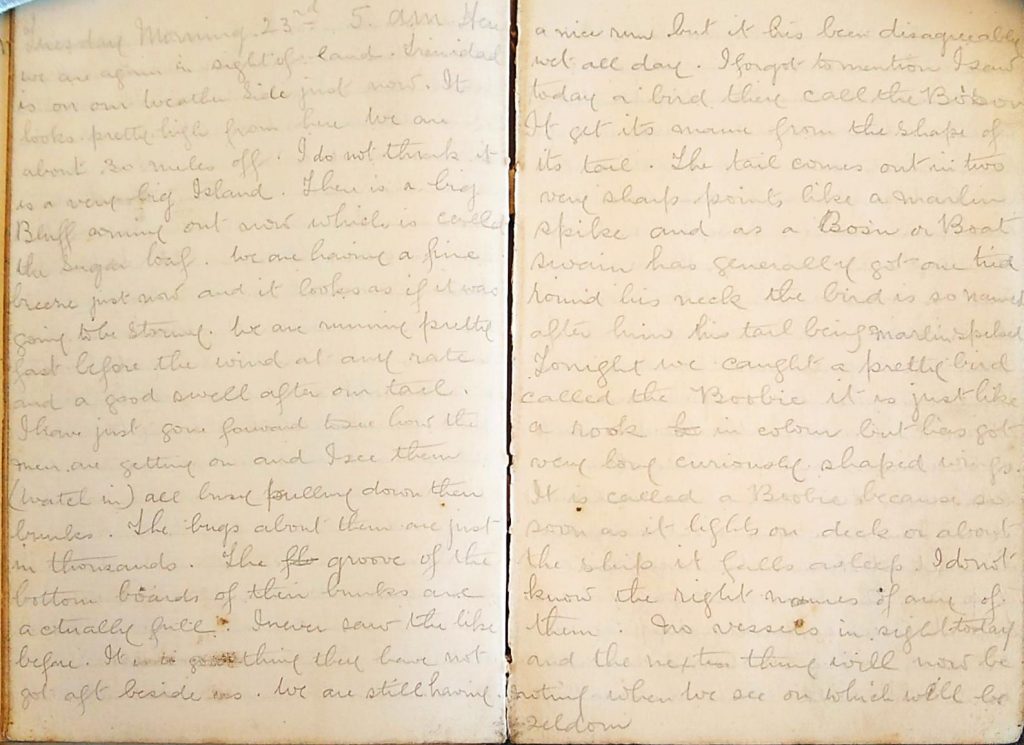 Tuesday Morning. 23rd 5. am Here
we are again in sight of land. Trinidad
is on our weather side just now. It
looks pretty high from here we are
about 30 miles off. I do not think it
is a very big Island. There is a big
Bluff coming out now which is called
the Sugar loaf. We are having a fine
breeze just now and it looks as if it was
going to be stormy. We are running pretty
fast before the wind at any rate
and a good swell after our tail.
I have just gone forward to see how the
men are getting on and I see them
(watch in) all busy pulling down their
bunks. The bugs about them are just
in thousands. The groove of the
bottom boards of their bunks are
actually full. I never saw the like
before. It is a good thing they have not
got aft beside us. We are still having
a nice run but it his been disagreeably
wet all day. I forgot to mention I saw
today a bird they call the Bo'son
It get its name from the shape of
its tail. The tail comes out in two
very sharp points like a marlin
spike and as a Bosn or Boat
swain has generally got one tied
round his neck the bird is so named
after him his tail being marlin spiked
Tonight we caught a pretty bird
called the Boobie it is just like
a rook in colour but has got
very long curiously shaped wings.
It is called a Boobie because so
soon as it lights on deck or about
the ship it falls asleep. I do not
know the right names of any of
them. No vessels in sight today
and the next thing will now be
noting when we see on which will be
seldom